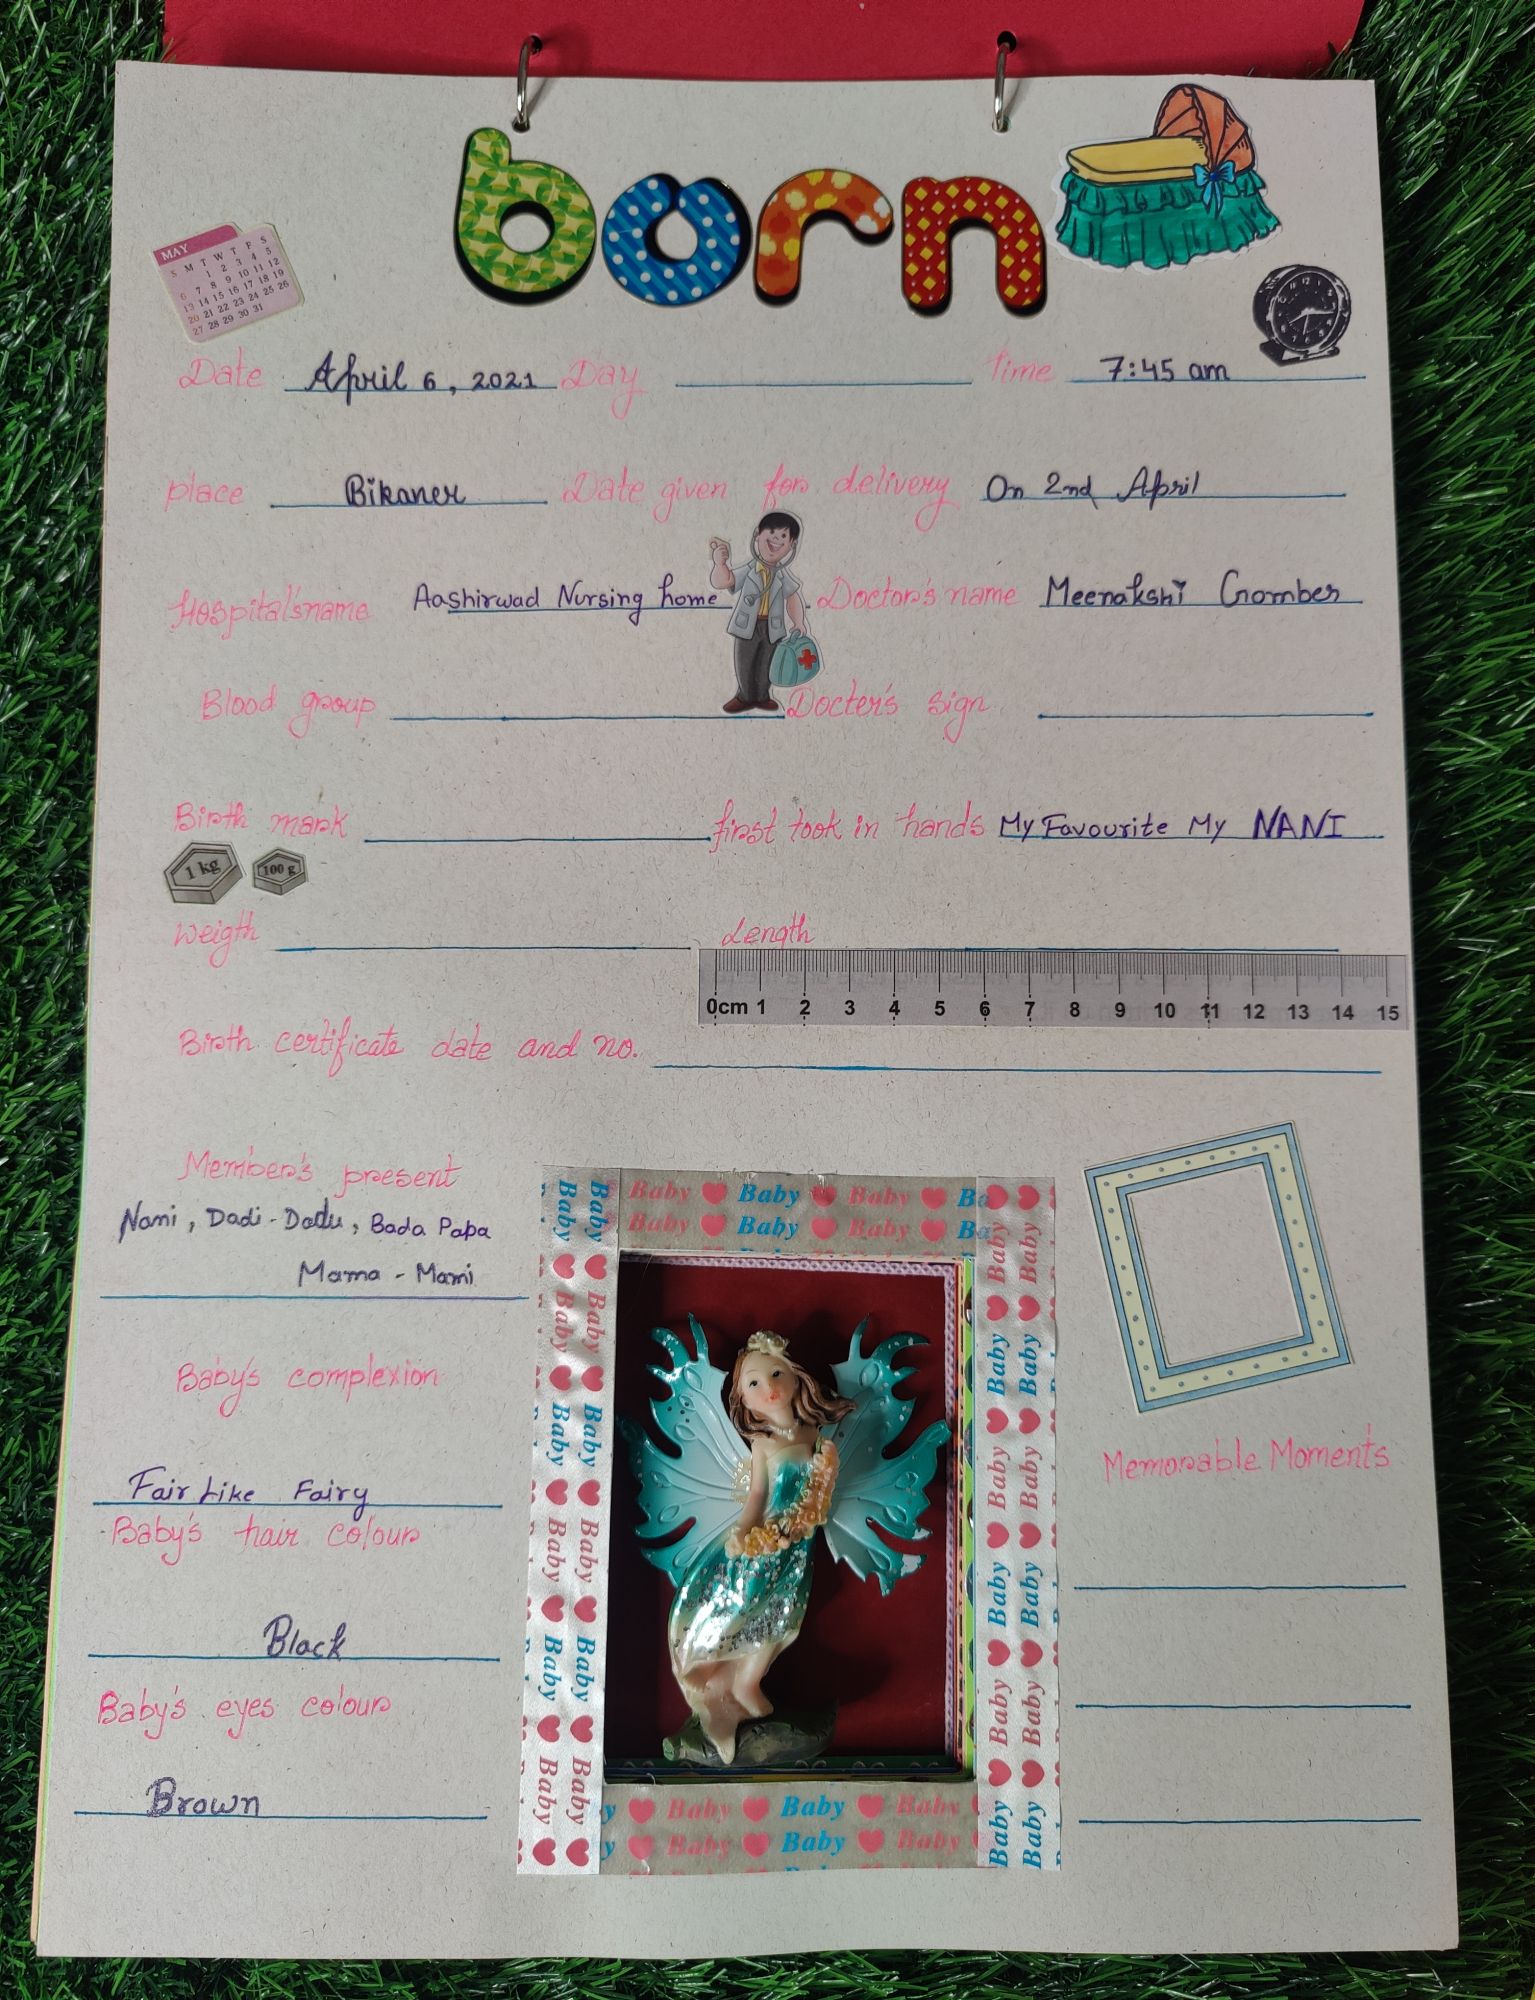 born
MAY
S M T W T F S
1 2 3 4 5
6 7 8 9 10 11 12
13 14 15 16 17 18 19
20 21 22 23 24 25 26
27 28 29 30 31
Date April 6, 2021 Day Time 7:45 am
place Bikaner Date given for delivery On 2nd April
Hospital's name Aashirwad Nursing home Doctor's name Meenakshi Gomber
Blood group Docter's sign
Birth mark first took in hands My Favourite My NANI
1 kg 100 g
Weigth Length
0cm 1 2 3 4 5 6 7 8 9 10 11 12 13 14 15
Birth certificate date and no.
Member's present
Nani, Dadi-Dadu, Bada Papa
Mama - Mami
Baby's complexion
Fair Like Fairy
Baby's hair colour
Black
Baby's eyes colour
Brown
Baby Baby Baby
Baby Baby Baby
Memorable Moments
Baby Baby Baby
Baby Baby Baby